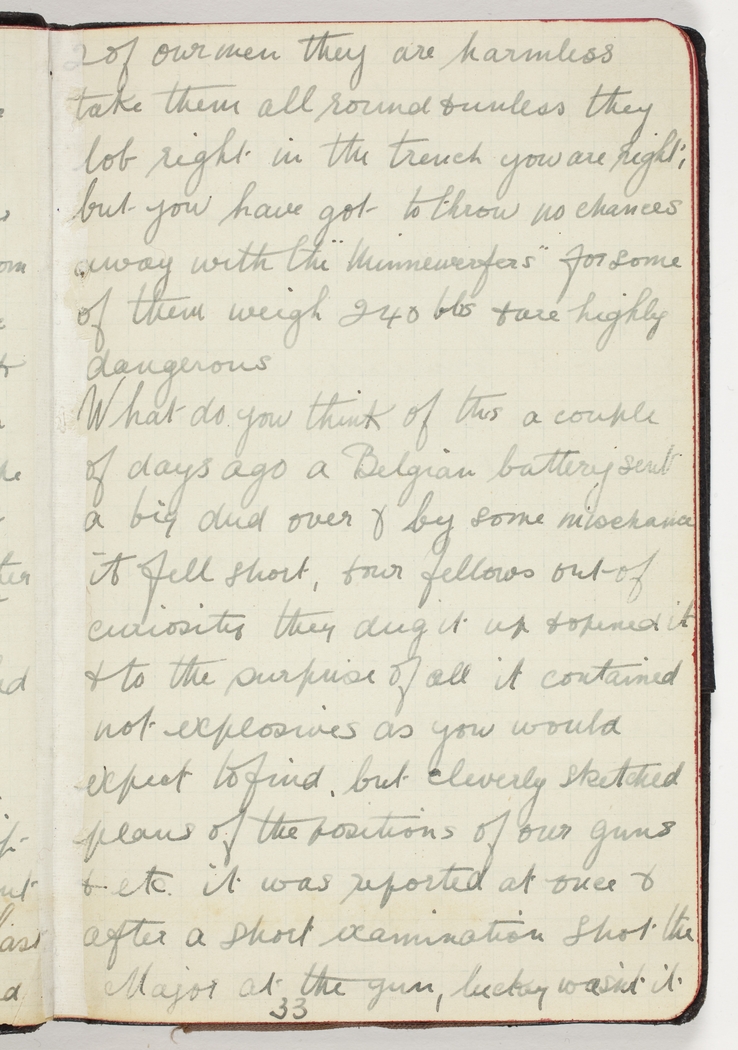 2 of our men they are harmless
take them all round & unless they
lob right in the trench you are right;
but you have got to throw no chances
away with the "Minnewerfers" for some
of them weigh 240 lbs & are highly
dangerous
What do you think of this a couple
of days ago a Belgian battery sent
a big dud over & by some mischance
it fell short, & our fellows out of
curiosity they dug it up & opened it
& to the surprise of all it contained
not explosives as you would
expect to find, but cleverly sketched
plans of the positions of our guns
& etc. it was reported at once &
after a short examination shot the
Major at the gun, lucky wasnt it
33